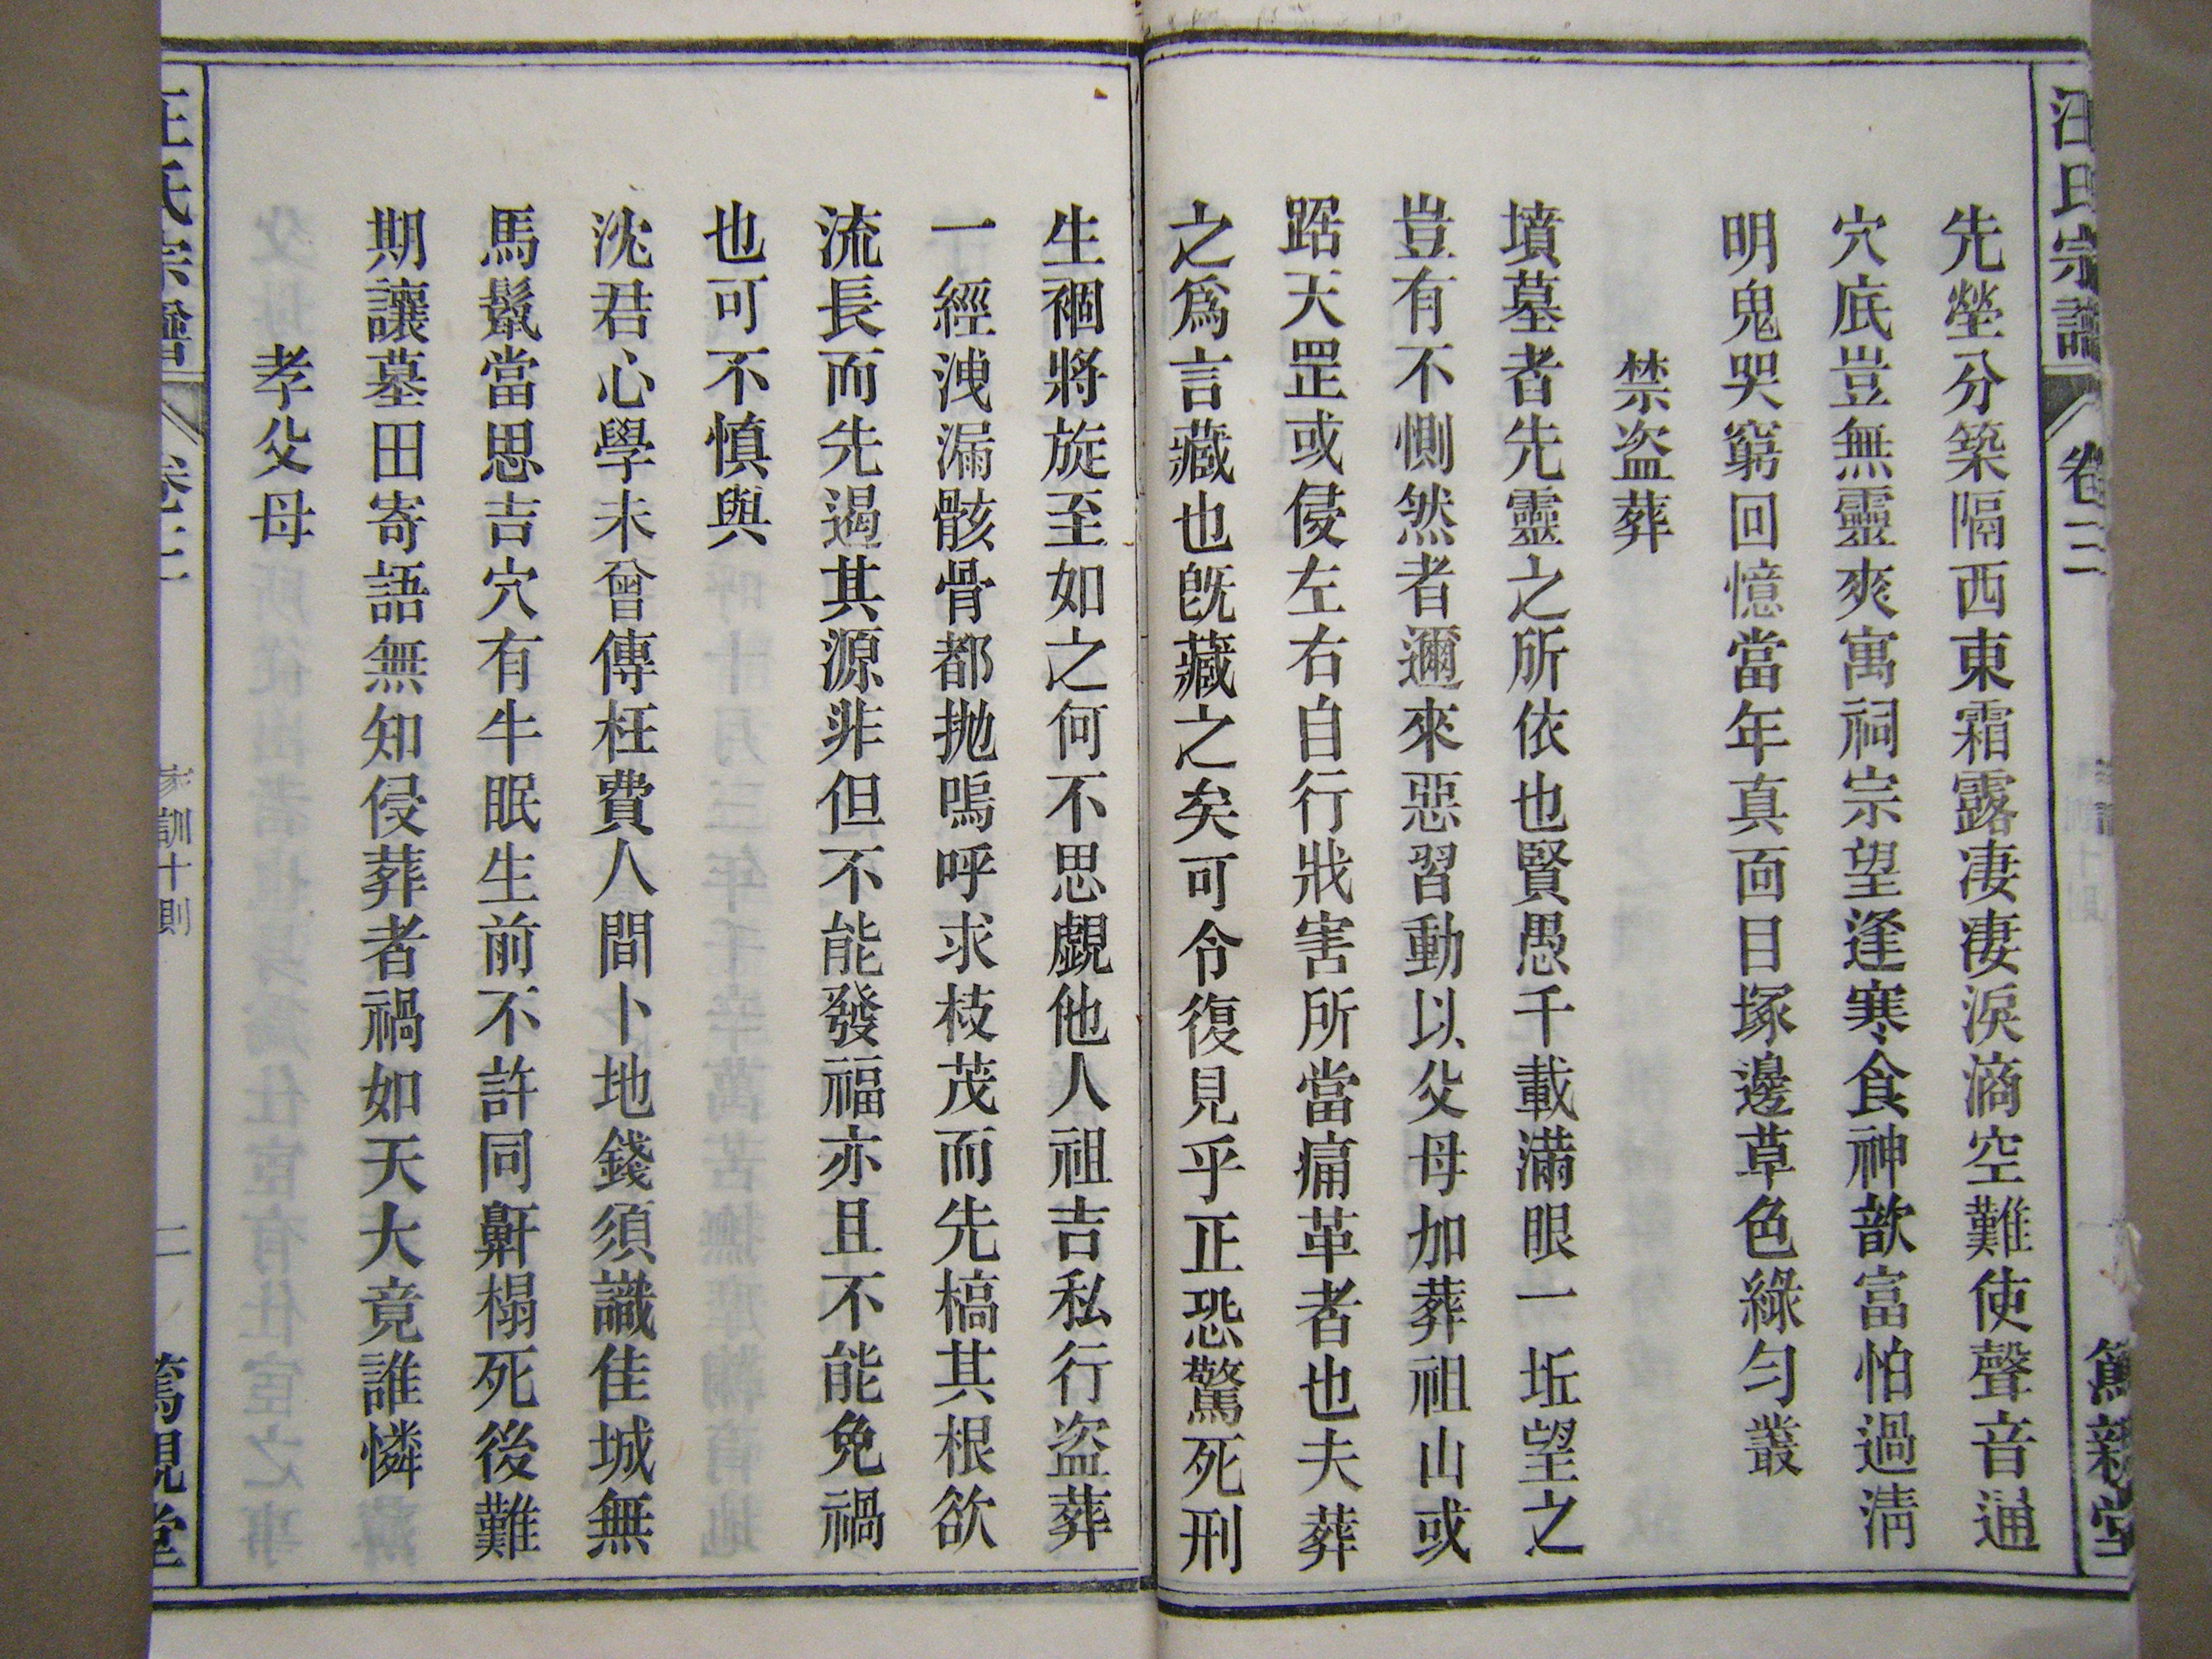 汪氏宗譜 卷三 篤親堂
先塋分築隔西東霜露凄凄淚滴空難使聲音通
穴底豈無靈爽寓祠宗望逢寒食神歆富怕過清
明鬼哭窮回憶當年真面目塚邊草色綠匀叢
禁盜葬
墳墓者先靈之所依也賢愚千載滿眼一坵望之
豈有不惻然者邇來惡習動以父母加葬祖山或
踞天罡或侵左右自行戕害所當痛革者也夫葬
之爲言藏也旣藏之矣可令復見乎正恐驚死刑
生禍將旋至如之何不思覷他人祖吉私行盜葬
一經洩漏骸骨都拋嗚呼求枝茂而先槁其根欲
流長而先遏其源非但不能發福亦且不能免禍
也可不慎與
沈君心學未曾傳枉費人間卜地錢須識佳城無
馬鬣當思吉穴有牛眠生前不許同鼾榻死後難
期讓墓田寄語無知侵葬者禍如天大竟誰憐
孝父母
汪氏宗譜 卷三 家訓十則 二 篤親堂